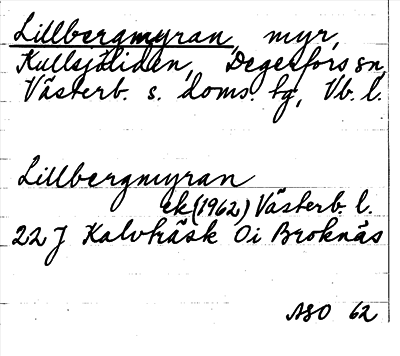 Lillbergmyran, myr,
Kullsjöliden, Degerfors sn,
Västerb. s. doms. fg, Vb. l.
Lillbergmyran
ek (1962) Västerb. l.
22 J Kalvträsk Oi Broknäs
ASO 62